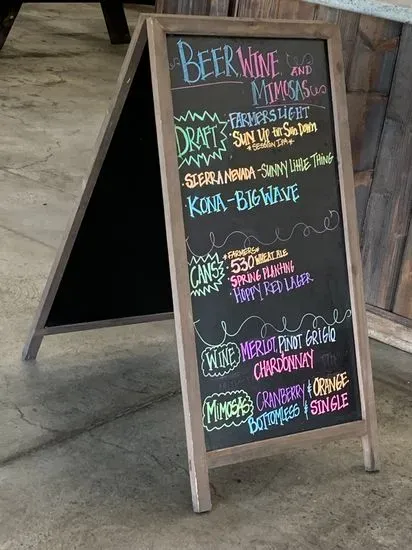 BEER, WINE, AND
MIMOSAS
DRAFT
FARMERS LIGHT
SUN UP till Sun Down
* SESSION IPA *
• SIERRA NEVADA - SUNNY LITTLE THING
KONA - BIG WAVE
CANS
* FARMERS *
• 530 WHEAT ALE
SPRING PLANTING
HOPPY RED LAGER
WINE
MERLOT, PINOT GRIGIO
CHARDONNAY
MIMOSAS
CRANBERRY & ORANGE
BOTTOMLESS & SINGLE